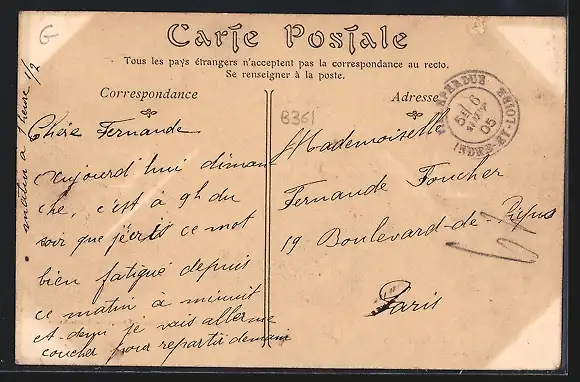 G
Carte Postale
Tous les pays étrangers n'acceptent pas la correspondance au recto.
Se renseigner à la poste.
Correspondance
Adresse
B361
Chère Fernande
aujourd'hui diman
che, c'est à 9h du
soir que j'écris ce mot
bien fatigué depuis
ce matin à minuit
et demi je vais aller me
coucher pour repartir demain
matin à 1 heure 1/2
Mademoiselle
Fernande Foucher
19 Boulevard-de-
Paris
5E 6
AOUT
05
INDRE-ET-LOIRE